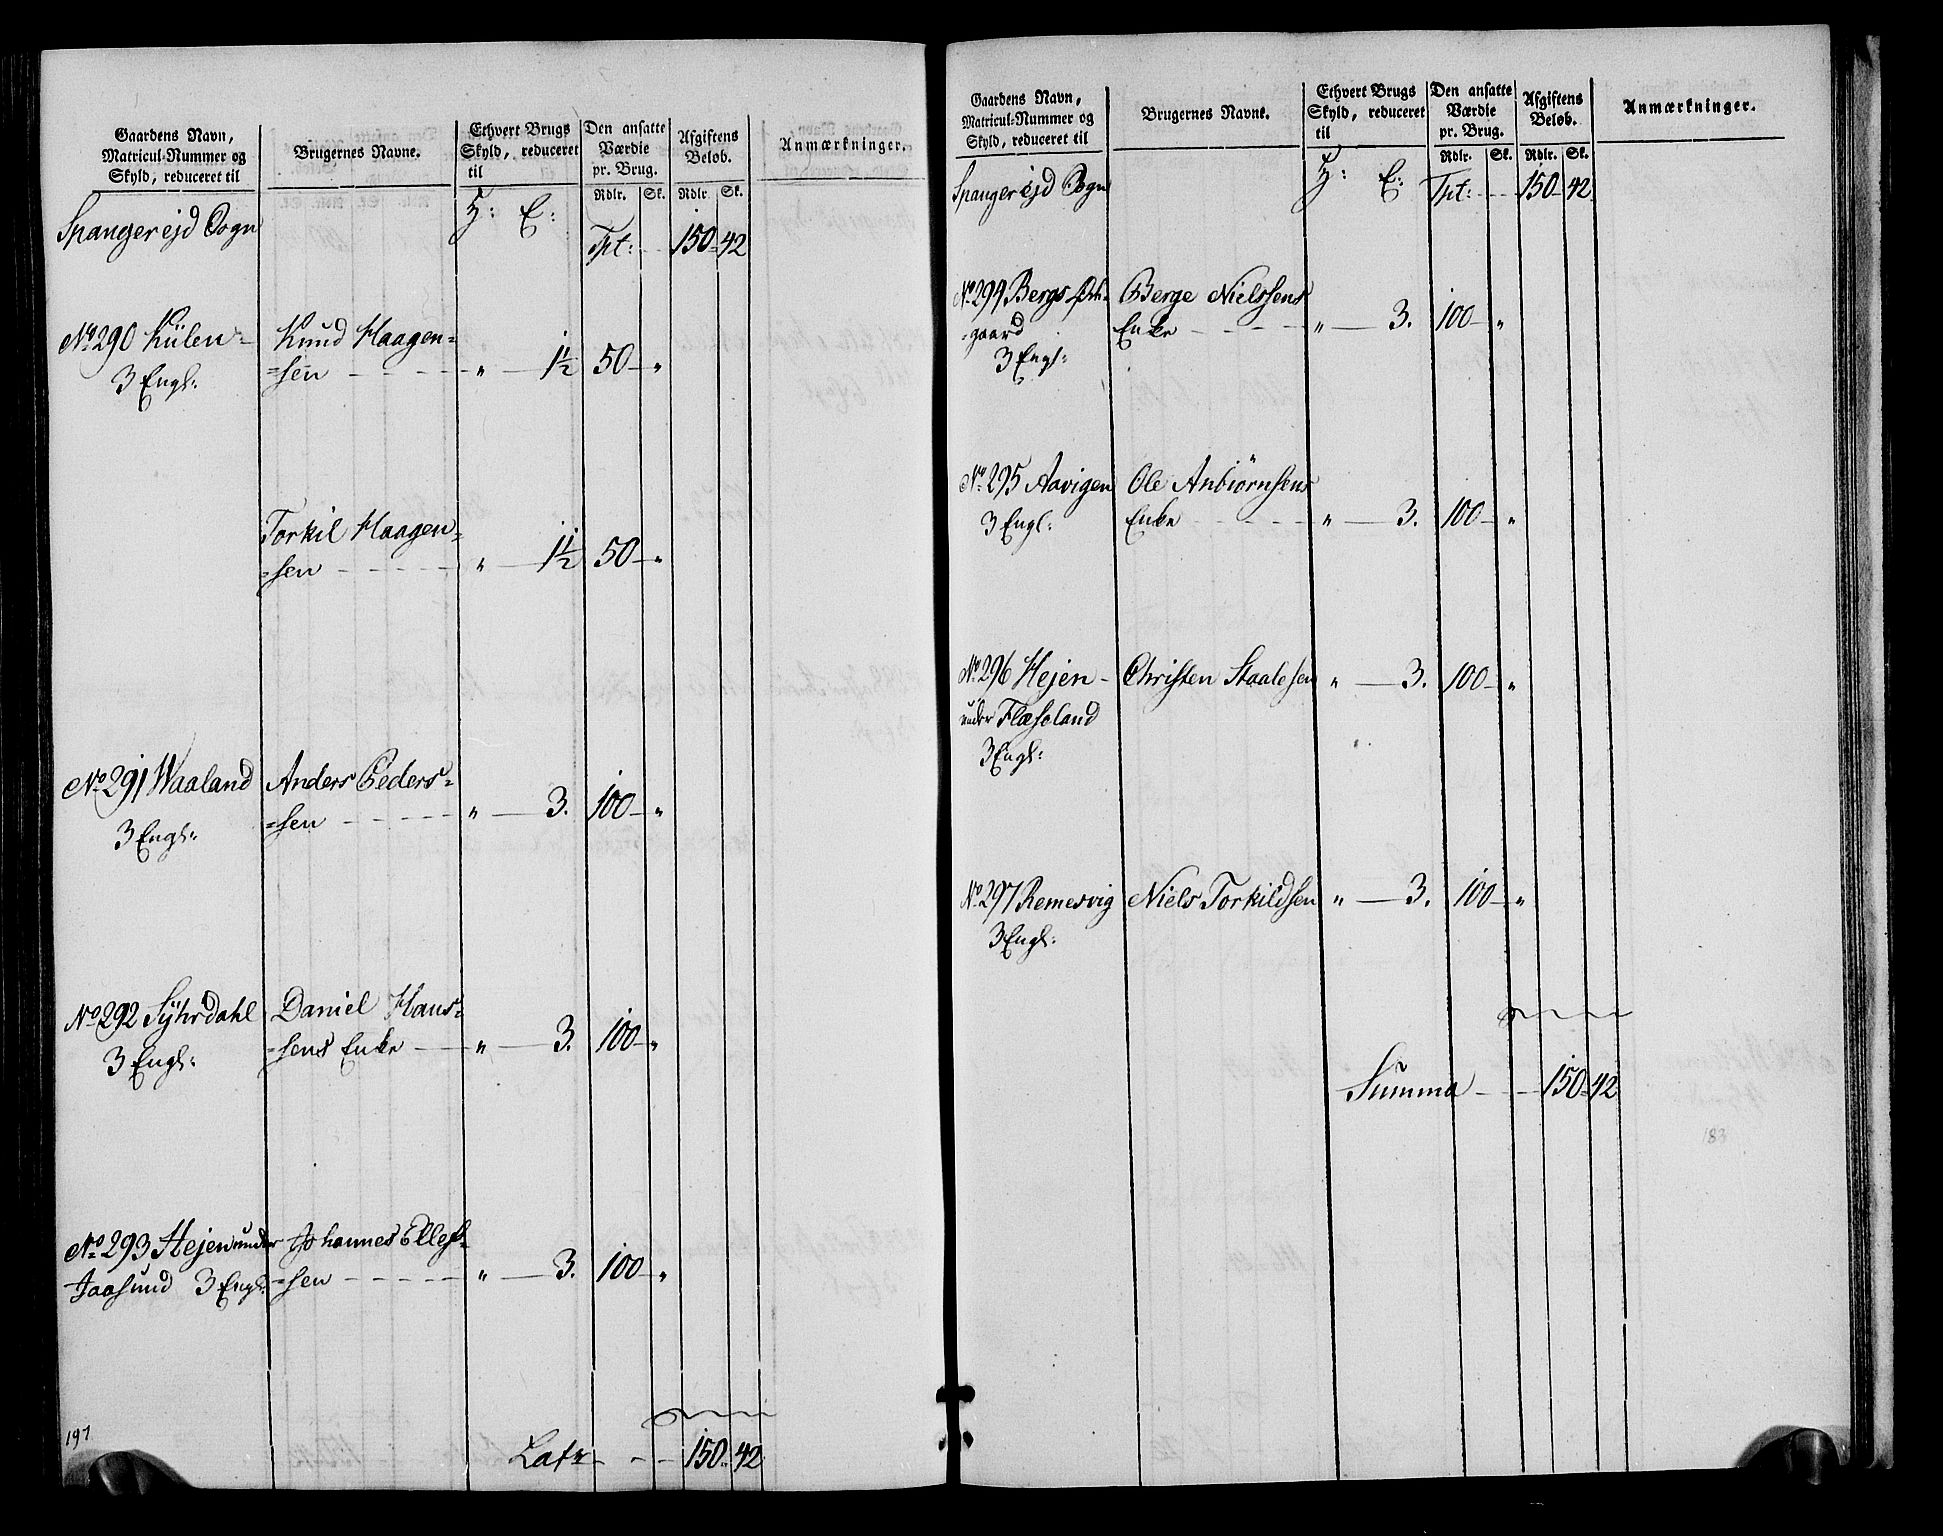 Gaardens Navn,
Matricul-Nummer og
Skyld, reduceret til
Brugernes Navne.
Ethvert Brugs
Skyld, reduceret
til
Den ansatte
Værdie
pr. Brug.
Rdlr. Sk.
Afgiftens
Beløb.
Rdlr Sk.
Anmærkninger.
Spangerejd Sogn H: E: Tpt: 150 42
No 290 Külen Knud Haagen=
3 Engl: =sen " 1½ 50 "
Torkil Haagen=
=sen " 1½ 50 "
No 291 Waaland Anders Peders=
3 Engl: =sen " 3. 100 "
No 292 Syhrdahl Daniel Hans=
3 Engl: =sens Enke " 3. 100 "
No 293 Hejen under Johannes Ellefs=
Jaasund 3 Engl: =sen " 3. 100 "
197
Latr 150 42
Gaardens Navn,
Matricul-Nummer og
Skyld, reduceret til
Brugernes Navne.
Ethvert Brugs
Skyld, reduceret
til
Den ansatte
Værdie
pr. Brug.
Rdlr. Sk.
Afgiftens
Beløb.
Rdlr. Sk.
Anmærkninger.
Spangerejd Sogn H: E: Tpt: 150 42
No 294 Bergs Berge Nielssens
=gaard Enke " 3. 100 "
3 Engl:
No 295 Aavigen Ole Anbiørnsens
3 Engl: Enke " 3. 100 "
No 296 Hejen Christen Staalesen " 3. 100 "
under Flæseland
3 Engl:
No 297 Remesvig Niels Torkildsen " 3. 100 "
3 Engl:
Summa 150 42
183